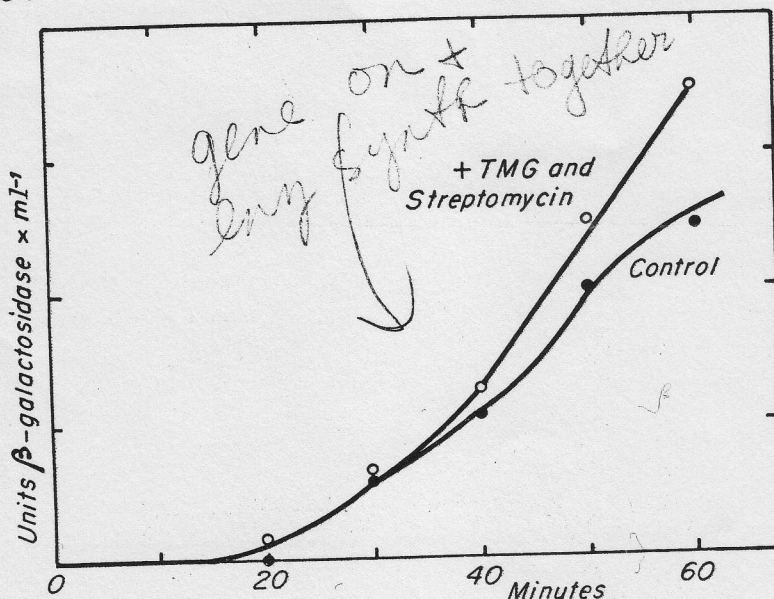 gene on +
enz synth together
+ TMG and
Streptomycin
Control
Units β-galactosidase × ml⁻¹
0
20
40
60
Minutes
β